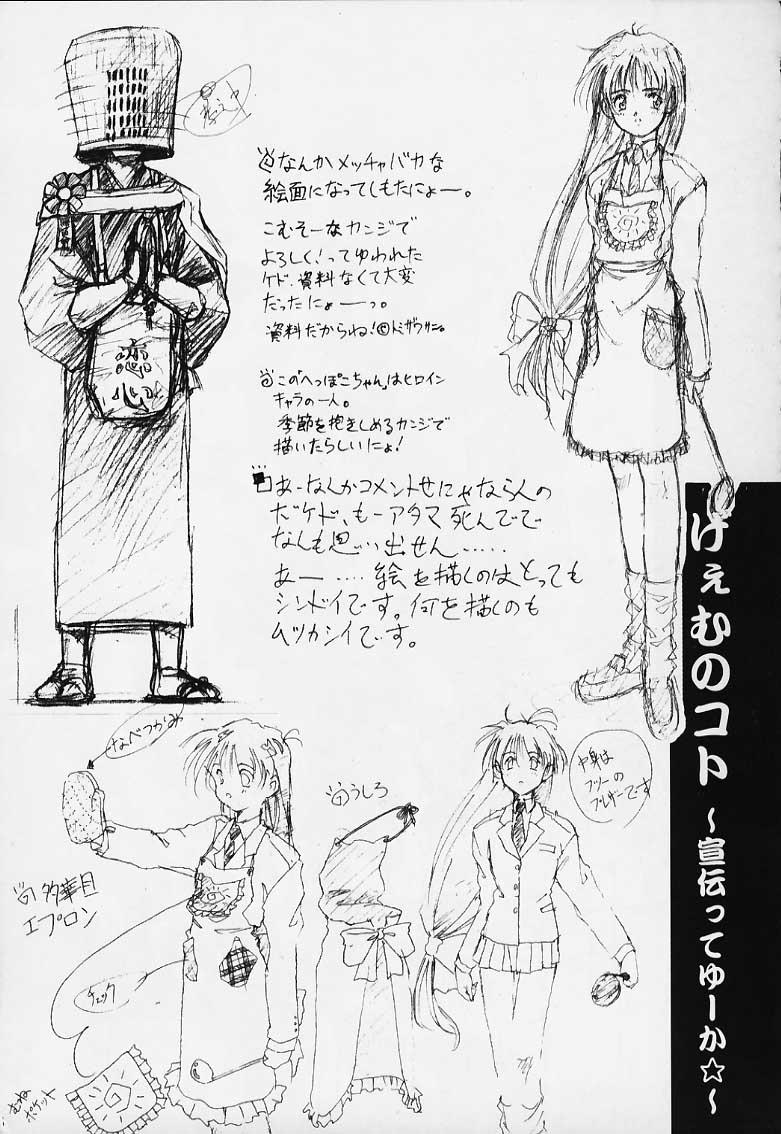 けぇむのコト
～宣伝ってゆーか☆～
なんかメッチャバカな
絵面になってしもたにょー。
こむそーなカンジで
よろしく!ってゆわれた
ケド、資料なくて大変
だったにょーっ。
資料だからね!©トミザワサン。
この「へっぽこちゃん」はヒロイン
キャラの一人。
季節を抱きしめるカンジで
描いたらしいにょ!
あーなんかコメントせにゃならんの
だケド、もーアタマ死んでで
なんも思い出せん……
あー……絵を描くのはとっても
シンドイです。何を描くのも
ムツカシイです。
恋心
なべつかみ
うしろ
中身は
フツーの
ブレザーです
多華日
エプロン
チェック
むね
ポケット